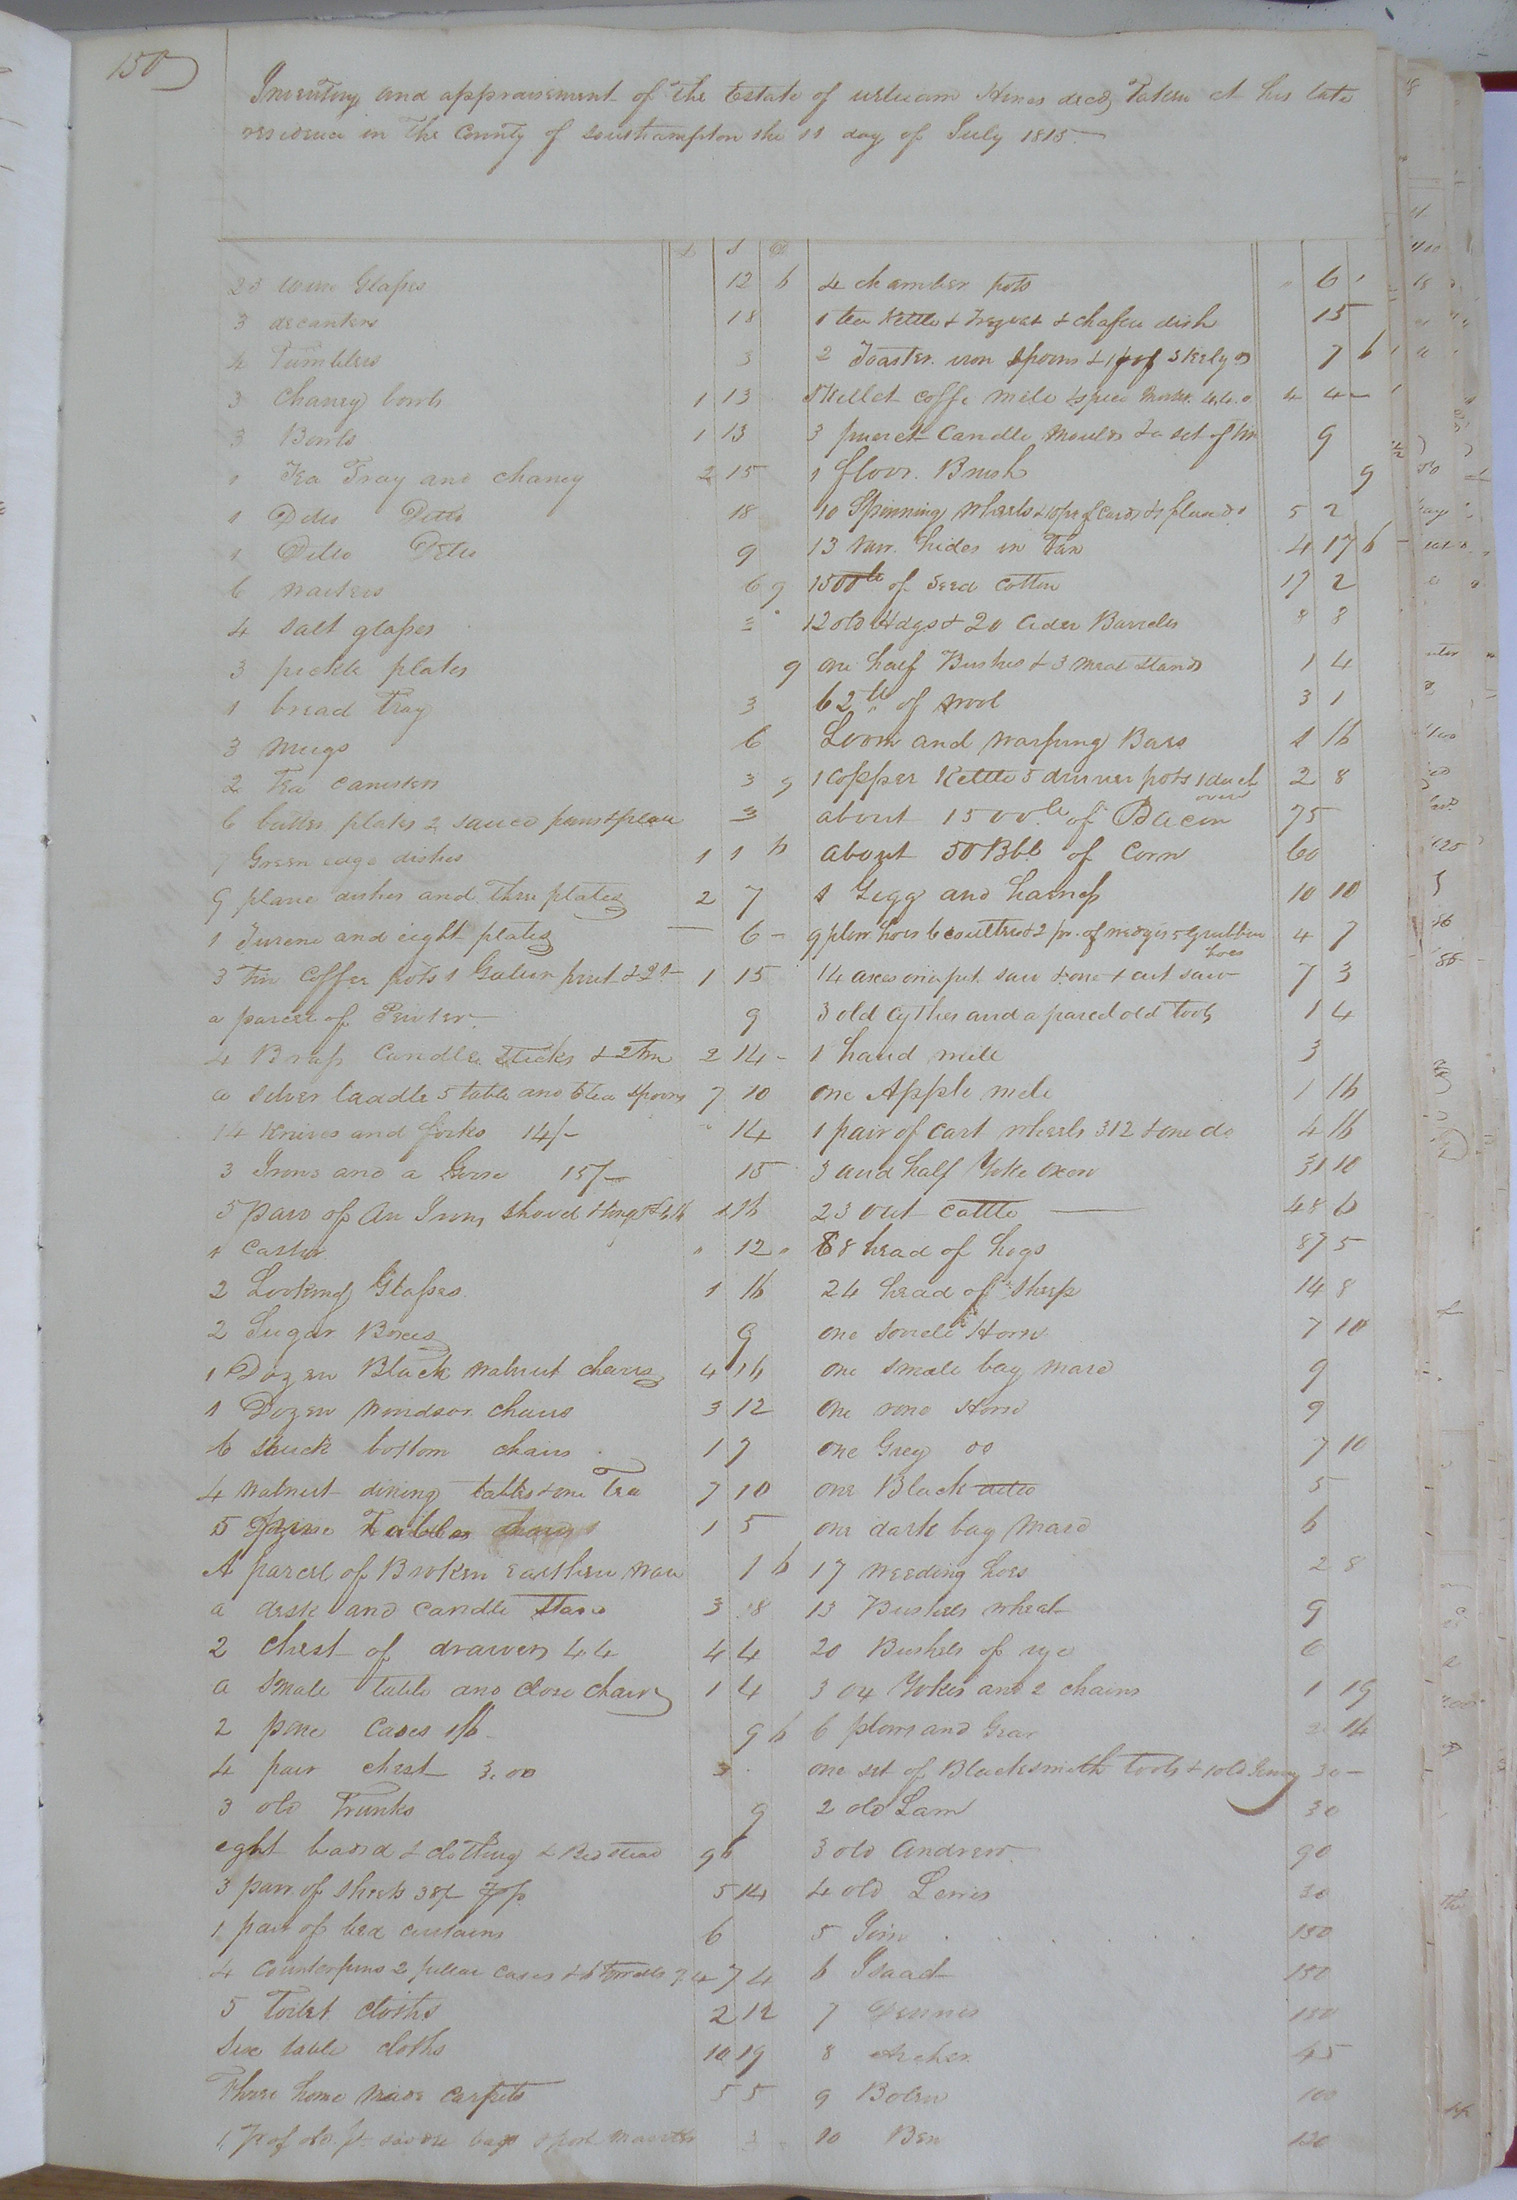 150
Inventory and appraisement of the Estate of William Hines decd, Taken at his late
residence in the County of Southampton the 11 day of July 1815
£ s d
23 wine Glasses 12 6
3 decanters 18
4 Tumblers 3
3 Chaney bowls 1 13
3 Bowls 1 13
1 Tea Tray and chaney 2 15
1 Ditto Ditto 18
1 Ditto Ditto 9
6 waiters 6 9
4 salt glasses 3
3 pickle plates 9
1 bread Tray 3
3 mugs 6
2 Tea canisters 3 9
6 butter plates 2 sauce 3
7 Green edge dishes 1 1 6
9 plane dishes and three plates 2 7
1 Turene and eight plates 6
3 tin Coffee pots 1 15
a parcel of Pewter 9
4 Brass Candle Sticks & 2 tin 2 14
a silver laddle 5 table and 6 tea spoons 7 10
14 knives and forks 14/- 14
3 Irons and a Goose 15/- 15
5 pair of An Irons shovel & tongs 1 16
1 Castor 12
2 Looking Glasses 1 16
2 Sugar Boxes 9
1 Dozen Black walnut chairs 4 16
1 Dozen windsor chairs 3 12
6 bottom chairs 1 7
4 walnut dining tables & one Tea 7 10
5 Tables 1 5
A parcel of Broken Earthen ware 1 6
a desk and candle stand 3 18
2 chest of drawers 4.4 4 4
a smale table and close chair 1 4
2 Cases 9 6
4 chest 3.00 3
3 old Trunks 9
eght & clothing & Bed stead 96
3 pair of sheets 38/- 5 14
1 pair of bed curtains 6
4 Counterpins 2 pillar cases & 6 Towells 7.4 7 4
5 Toilet cloths 2 12
Six table cloths 10 19
Three home made carpets 5 5
4 chamber pots 6
1 tea Kettle & & chafen dish 15
2 Toaster iron spoons & 1 pr of 7 6
Skellet coffe mill & spice 4.4.0 4 4
3 Candle moulds & a set of 9
1 floor Brush 9
10 Spinning wheels & 10 pr of Cards & 1 5 2
13 raw hides in Tan 4 17 6
1500 lb of Seed Cotton 17 2
12 old Hdgs & 20 Cider Barrels 8 8
one half Bushes & 3 meal stands 1 4
62 lb of wool 3 1
Loom and warping Bars 1 16
1 Copper Kettle 5 dinner pots 1 duch oven 2 8
about 1500 lb of Bacon 75
about 50 Bbls of Corn 60
1 Gigg and harness 10 10
9 plow hoes 6 coulters & 2 pr. of wedges 5 Grubbin hoes 4 7
14 axes one pit saw & one + cut saw 7 3
3 old Cythes and a parcel old tools 1 4
1 hand mill 3
one Apple mill 1 16
1 pair of cart wheels 312 & one do 4 16
3 and half Yoke Oxen 31 10
23 out cattle 48 6
68 head of hogs 87 5
24 head of Sheep 14 8
one sorrell Horse 7 10
one smale bay mare 9
One rone Horse 9
one Grey do 7 10
one Black ditto 5
one dark bay mare 6
17 weeding hoes 2 8
13 Bushels wheat 9
20 Bushels of rye 6
3 ox Yokes and 2 chains 1 19
6 plows and Gear 2 14
one set of Blacksmith tools & 1 old 30
2 old Sam 30
3 old Andrew 90
4 old Lewis 30
5 Jim 150
6 Isaac 150
7 Dennis 150
8 Archer 45
9 Bolen 100
10 Ben 120